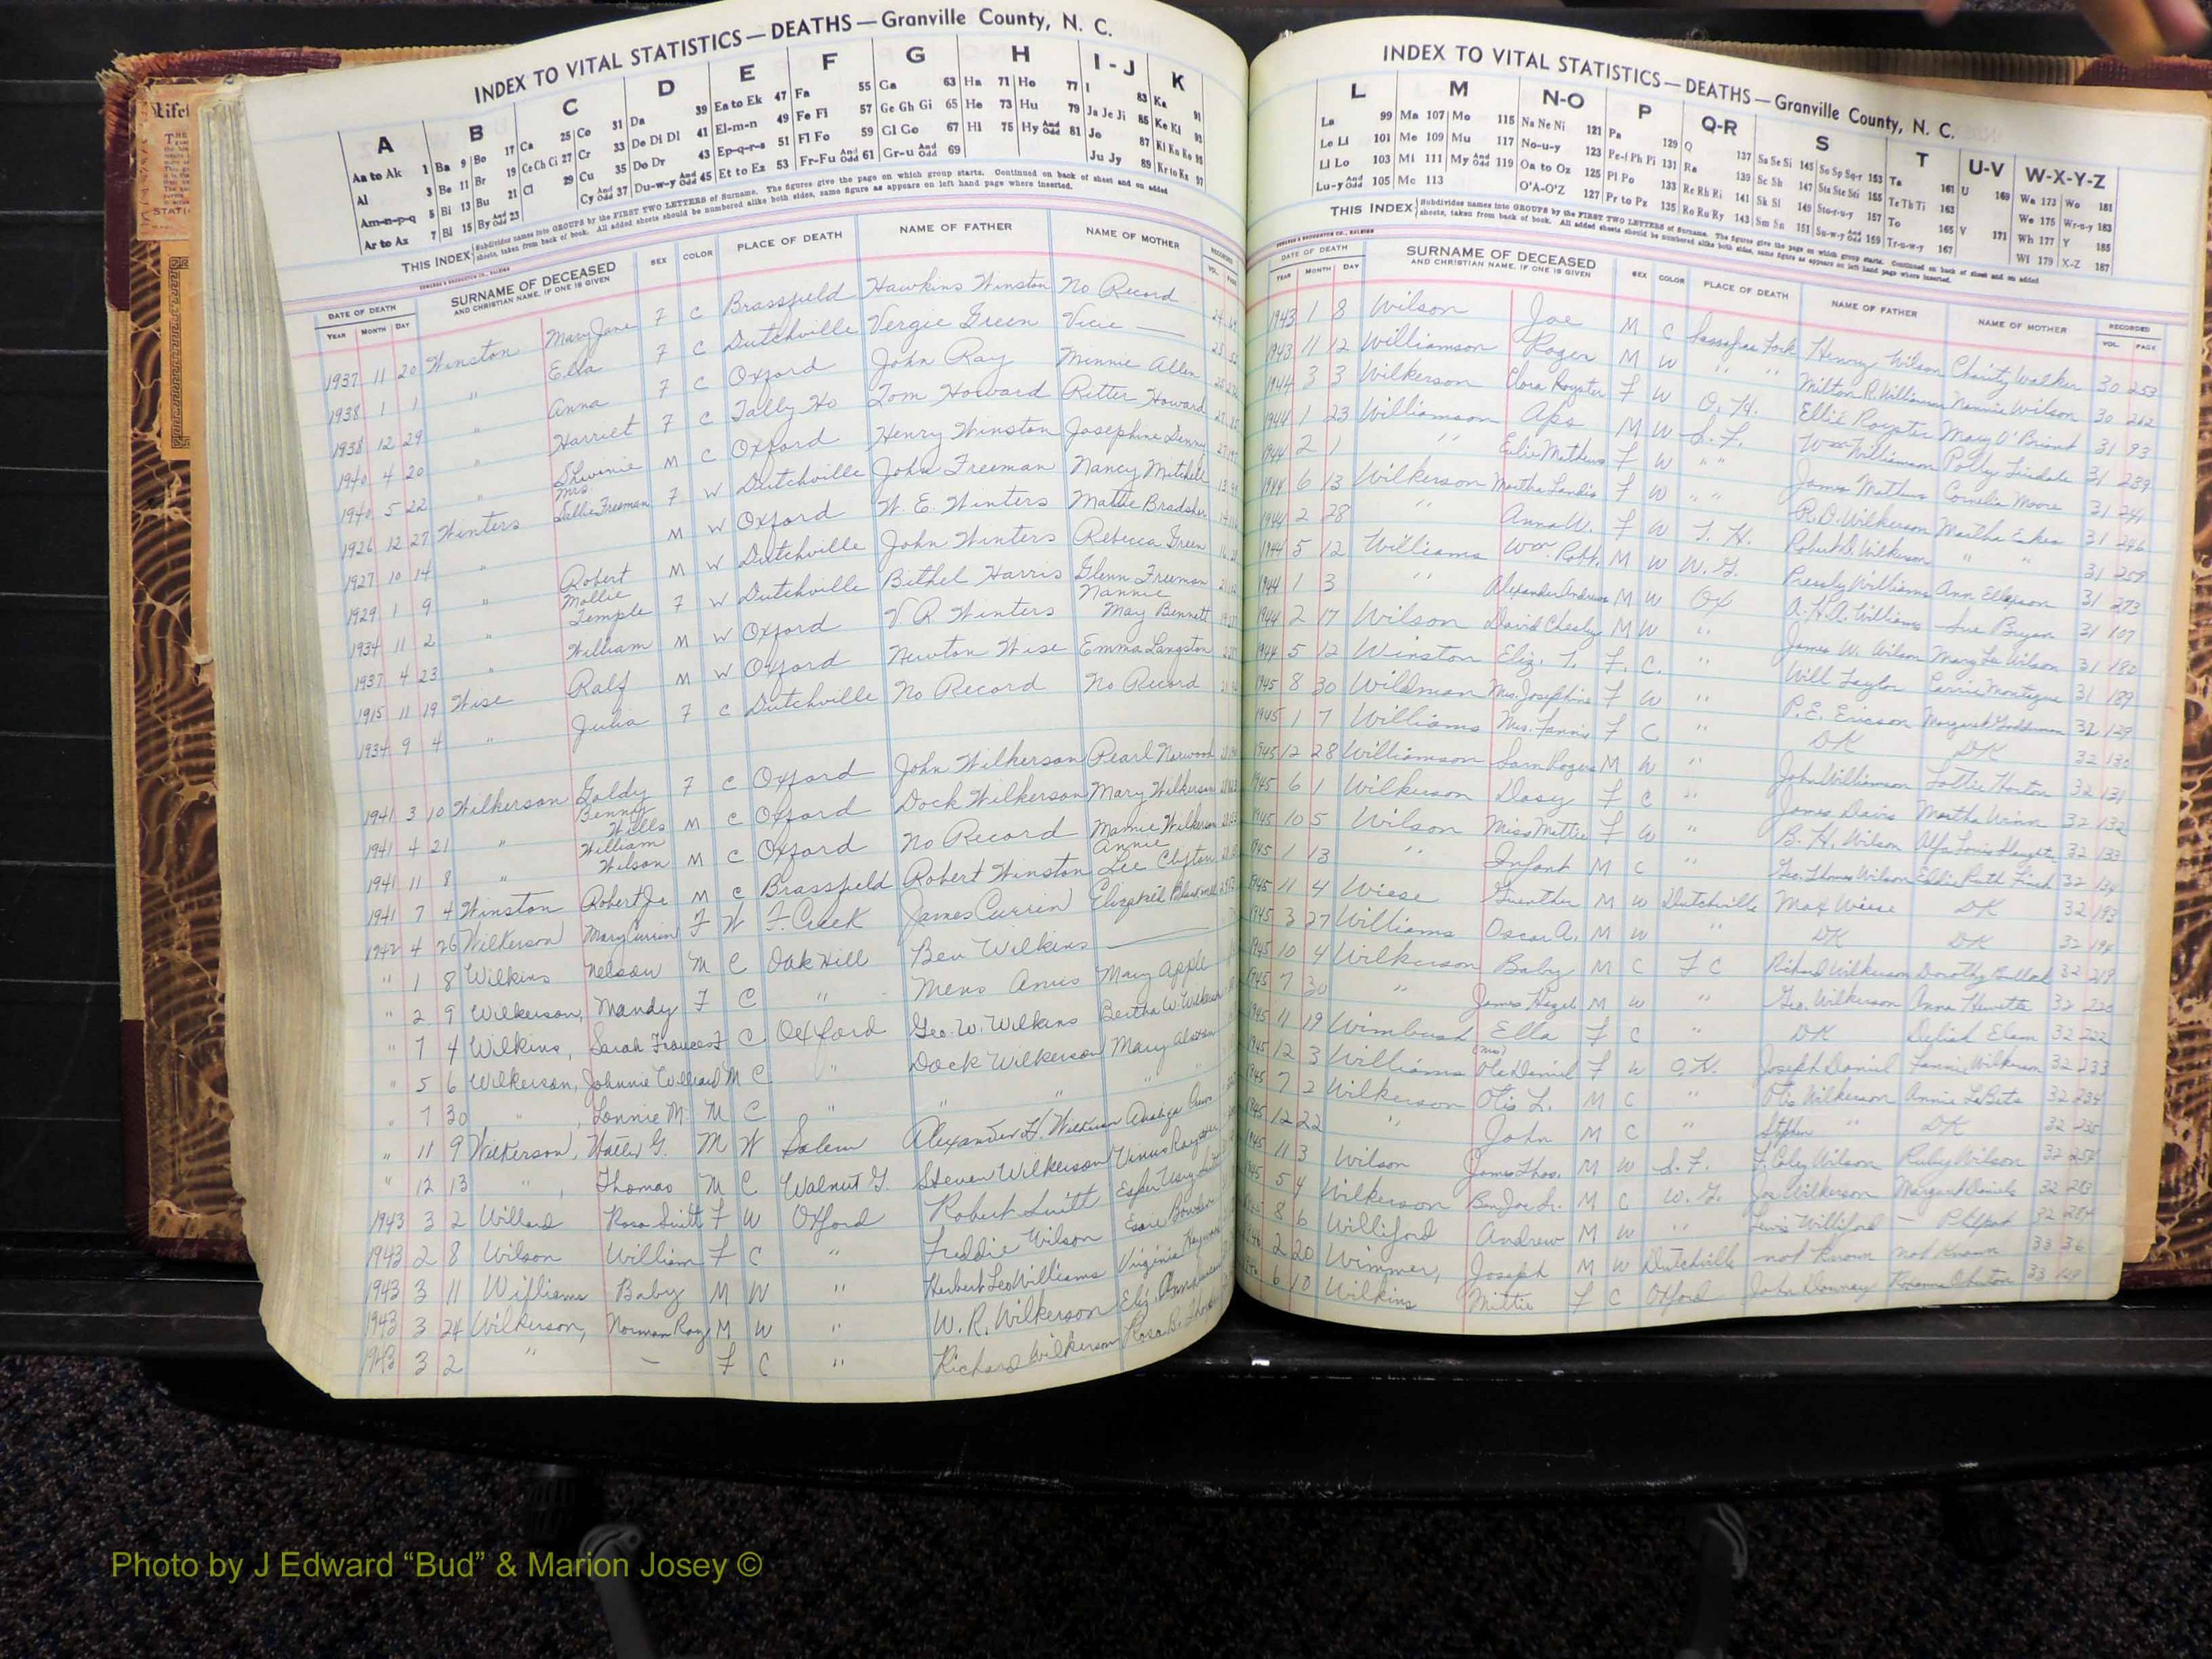 INDEX TO VITAL STATISTICS — DEATHS — Granville County, N. C.
A B C D E F G H I-J K
Aa to Ak 1 Ba 9 Bo 17 Ca 25 Co 31 Da 39 Ea to Ek 47 Fa 55 Ga 63 Ha 71 Ho 77 I 83 Ka 91
Al 3 Be 11 Br 19 Ce Ch Ci 27 Cr 33 De Di Dl 41 El-m-n 49 Fe Fi 57 Ge Gh Gi 65 He 73 Hu 79 Ja Je Ji 85 Ke Ki 93
Am-n-p-q 5 Bi 13 Bu 21 Cl 29 Cu 35 Do Dr 43 Ep-q-r-s 51 Fl Fo 59 Gl Go 67 Hi 75 Hy And Odd 81 Jo 87 Kl Kn Ko 95
Ar to Az 7 Bl 15 By And Odd 23 Cy And Odd 37 Du-w-y And Odd 45 Et to Ez 53 Fr-Fu And Odd 61 Gr-u And Odd 69 Ju Jy 89 Kr to Kz 97
THIS INDEX Subdivides names into GROUPS by the FIRST TWO LETTERS of Surname. The figures give the page on which group starts. Continued on back of sheet and on added
sheets, taken from back of book. All added sheets should be numbered alike both sides, same figure as appears on left hand page where inserted.
DATE OF DEATH SURNAME OF DECEASED SEX COLOR PLACE OF DEATH NAME OF FATHER NAME OF MOTHER RECORDED
YEAR MONTH DAY AND CHRISTIAN NAME, IF ONE IS GIVEN VOL. PAGE
1937 11 20 Winston Mary Jane F C Brassfield Hawkins Winston No Record
1938 1 1 " Ella F C Dutchville Vergie Green Vicie —
1938 12 29 " Anna F C Oxford John Ray Minnie Allen
1940 4 20 " Harriet F C Tally Ho Tom Howard Ritter Howard
1940 5 22 " M C Oxford Henry Winston Josephine
1926 12 27 Winters Mrs Sallie Freeman F W Dutchville John Freeman Nancy Mitchell
1927 10 14 " M W Oxford W. E. Winters Mattie Bradsher
1929 1 9 " Robert M W Dutchville John Winters Rebecca Green
1934 11 2 " Mollie Temple F W Dutchville Bithel Harris Glenn Freeman
1937 4 23 " William M W Oxford V. R. Winters Nannie May Bennett
1915 11 19 Wise Ralf M W Oxford Newton Wise Emma Langston
1934 9 4 " Julia F C Dutchville No Record No Record
1941 3 10 Wilkerson Goldy F C Oxford John Wilkerson Pearl Norwood
1941 4 21 " Benny Wills M C Oxford Dock Wilkerson Mary Wilkerson
1941 11 8 " William Wilson M C Oxford No Record Mannie Wilkerson
1941 7 4 Winston Robert Jr M C Brassfield Robert Winston Annie Lee Clifton
1942 4 26 Wilkerson Mary Currin F W F. Creek James Currin Elizabeth
" 1 8 Wilkins Nelson M C Oak Hill Ben Wilkins —
" 2 9 Wilkerson, Mandy F C " Mens Amis Mary Apple
" 7 4 Wilkins, Sarah Frances F C Oxford Geo. W. Wilkins Bertha W. Wilkins
" 5 6 Wilkerson, Johnnie Willard M C " Dock Wilkerson Mary Alston
" 7 30 " , Lonnie M. M C " " "
" 11 9 Wilkerson, Walter G. M W Salem Alexander H. Wilkerson
" 12 13 " , Thomas M C Walnut G. Steven Wilkerson Venus Royster
1943 3 2 Willard Rosa Suitt F W Oxford Robert Suitt
1943 2 8 Wilson William F C " Freddie Wilson Essie
1943 3 11 Williams Baby M W " Herbert Leo Williams Virginia
1943 3 24 Wilkerson, Norman Ray M W " W. R. Wilkerson Eliz.
1943 3 2 " — F C " Richard Wilkerson Rosa B.
INDEX TO VITAL STATISTICS — DEATHS — Granville County, N. C.
L M N-O P Q-R S T U-V W-X-Y-Z
La 99 Ma 107 Mo 115 Na Ne Ni 121 Pa 129 Q 137 Sa Se Si 145 So Sp Sq-r 153 Ta 161 U 169 Wa 173 Wo 181
Le Li 101 Me 109 Mu 117 No-u-y 123 Pe-f Ph Pi 131 Ra 139 Sc Sh 147 Sta Ste Sti 155 Te Th Ti 163 We 175 Wr-u-y 183
Ll Lo 103 Mi 111 My And Odd 119 Oa to Oz 125 Pl Po 133 Re Rh Ri 141 Sk Sl 149 Sto-r-u-y 157 To 165 V 171 Wh 177 Y 185
Lu-y And Odd 105 Mc 113 O'A-O'Z 127 Pr to Pz 135 Ro Ru Ry 143 Sm Sn 151 Su-w-y And Odd 159 Tr-u-w-y 167 Wi 179 X-Z 187
THIS INDEX Subdivides names into GROUPS by the FIRST TWO LETTERS of Surname. The figures give the page on which group starts. Continued on back of sheet and on added
sheets, taken from back of book. All added sheets should be numbered alike both sides, same figure as appears on left hand page where inserted.
DATE OF DEATH SURNAME OF DECEASED SEX COLOR PLACE OF DEATH NAME OF FATHER NAME OF MOTHER RECORDED
YEAR MONTH DAY AND CHRISTIAN NAME, IF ONE IS GIVEN VOL. PAGE
1943 1 8 Wilson Joe M C Sassafras Fork Henry Wilson Charity Walker 30 253
1943 11 12 Williamson Roger M W " " Milton R. Williamson Nannie Wilson 30 262
1944 3 3 Wilkerson Clora Royster F W O. H. Ellie Royster Mary O'Briant 31 93
1944 1 23 Williamson Aps M W S. F. Wm Williamson Polly Tisdale 31 239
1944 2 1 " Eulie Mathews F W " " James Mathews Cornelia Moore 31 241
1944 6 13 Wilkerson Martha Landis F W " " R. D. Wilkerson Martha Eakes 31 246
1944 2 28 " Anna W. F W T. H. Robert D. Wilkerson " " 31 259
1944 5 12 Williams Wm. Robt. M W W. G. Pressly Williams Ann Ellepson 31 273
1944 1 3 " Alexander Andrew M W Ox A. H. A. Williams Sue Bryan 31 107
1944 2 17 Wilson David Chesly M W " James W. Wilson Mary Lee Wilson 31 180
1944 5 12 Winston Eliz. T. F. C. " Will Taylor Carrie Montague 31 189
1945 8 30 Wildman Mrs. Josephine F W " P. E. Ericson Margaret 32 129
1945 1 7 Williams Mrs. Fannie F C " DK DK 32 130
1945 12 28 Williamson Sam Rogers M W " John Williamson Lottie Horton 32 131
1945 6 1 Wilkerson Dasy F C " James Davis Martha Winn 32 132
1945 10 5 Wilson Miss Mittie F W " B. H. Wilson 32 133
1945 1 13 " Infant M C " Geo. Thomas Wilson Eddie Ruth Finch 32 134
1945 11 4 Wiese Guenther M W Dutchville Max Wiese DK 32 193
1945 3 27 Williams Oscar A. M W " DK DK 32 194
1945 10 4 Wilkerson Baby M C F C Richard Wilkerson Dorothy Bullock 32 219
1945 7 30 " James Hazel M W " Geo. Wilkerson Anna Hewette 32 220
1945 11 19 Wimbush Ella F C " DK Deliah Elam 32 222
1945 12 3 Williams (Mrs) Ola Daniel F W O. H. Joseph Daniel Fannie Wilkerson 32 233
1945 7 2 Wilkerson Otis L. M C " Otis Wilkerson Annie LaBets 32 234
1945 12 22 " John M C " Stephen " DK 32 235
1945 11 3 Wilson James Thos. M W S. F. T. Coley Wilson Ruby Wilson 32
1945 5 4 Wilkerson Ben Joe Sr. M C W. G. Joe Wilkerson Margaret Daniels 32 283
8 6 Williford Andrew M W " Lewis Williford — 32 284
2 20 Wimmer, Joseph M W Dutchville not Known not Known 33 36
6 10 Wilkins Mittie F C Oxford John Downey 33
Photo by J Edward “Bud” & Marion Josey ©